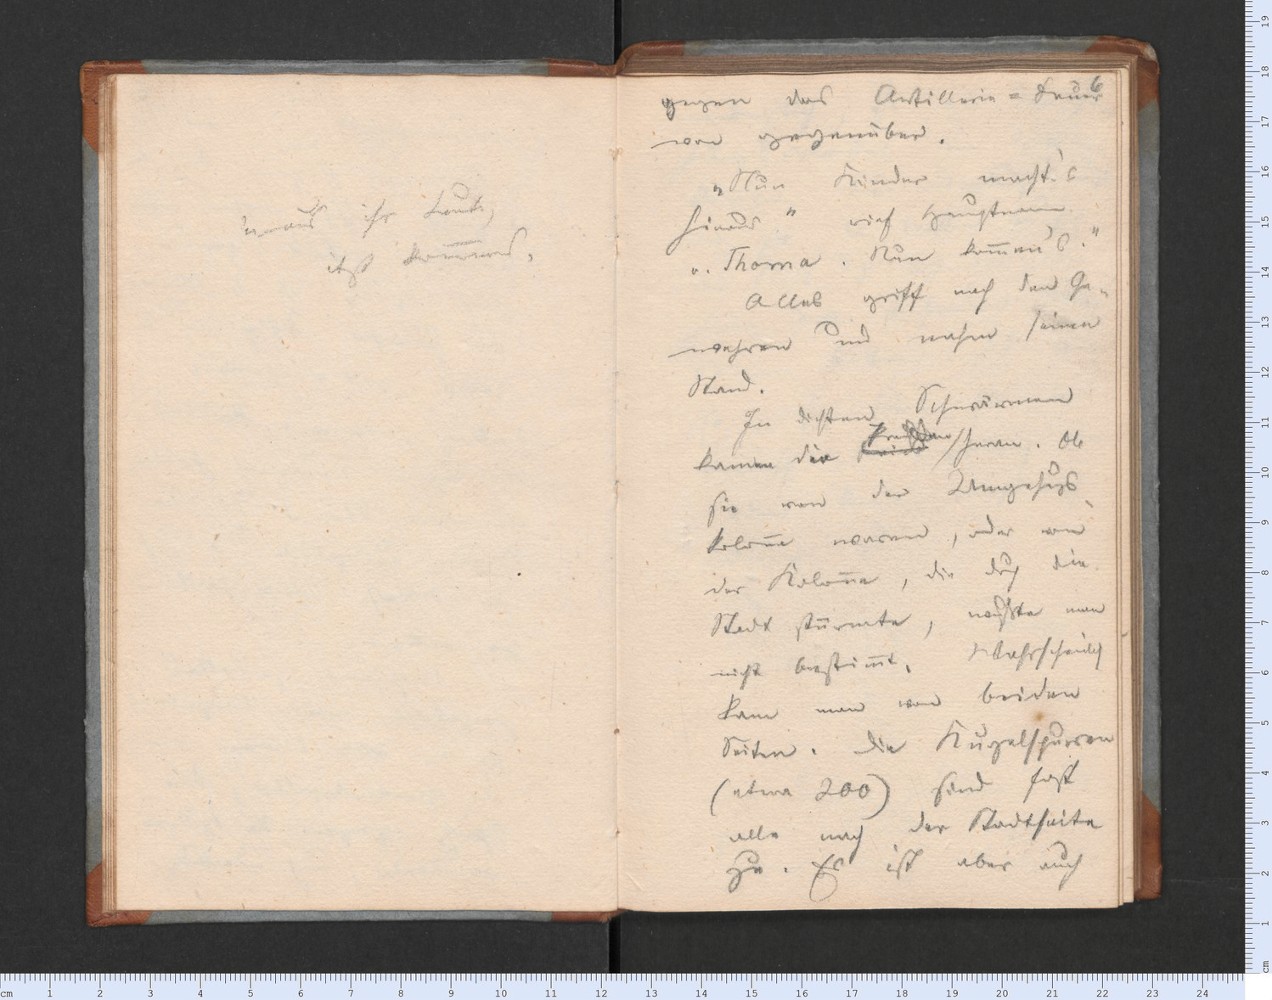 'naus ihr Leute,
itzt kommens.
6
gegen das Artillerie=Feuer
von gegenüber.
„Nun Kinder macht's
hinaus" rief Hauptmann
v. Thoma. Nun kommen's."
Alles griff nach den Ge-
wehren und nahm seinen
Stand.
In dichten Schwärmen
kamen die heran. Ob
sie von der Umgehungs
kolonne waren, oder von
der Kolonne, die durch die
Stadt stürmte, wußte man
nicht bestimmt. Wahrscheinlich
kam man von beiden
Seiten. Die Kugelspuren
(etwa 200) sind fast
alle nach der Stadtseite
zu. Es ist aber auch